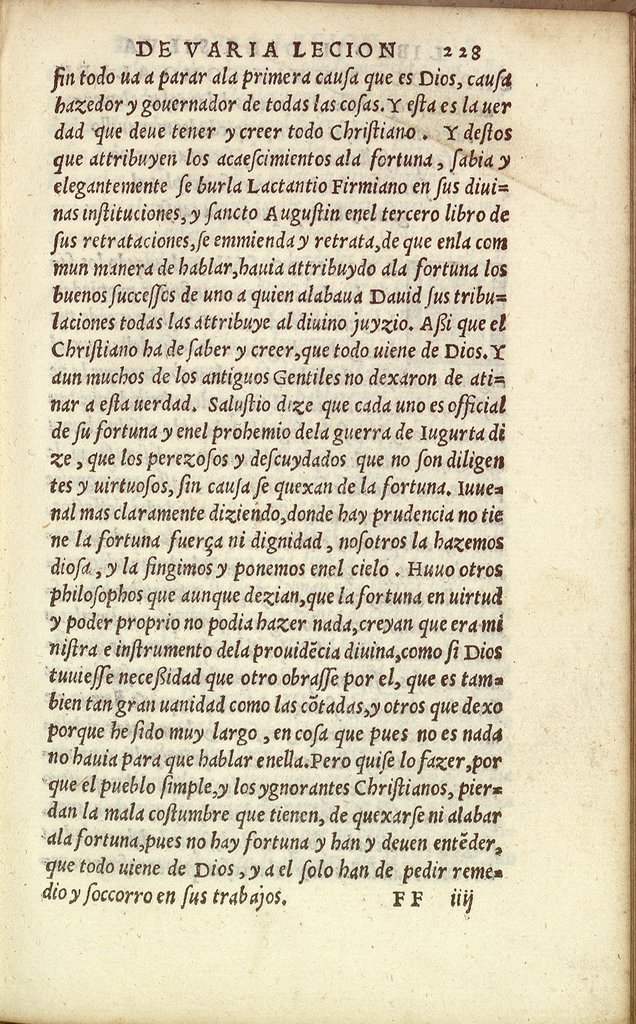 DE VARIA LECION 228
ſin todo ua a parar ala primera cauſa que es Dios, cauſa
hazedor y gouernador de todas las coſas. Y eſta es la uer
dad que deue tener y creer todo Chriſtiano. Y deſtos
que attribuyen los acaeſcimientos ala fortuna, ſabia y
elegantemente ſe burla Lactantio Firmiano en ſus diui=
nas inſtituciones, y ſancto Auguſtin enel tercero libro de
ſus retrataciones, ſe emmienda y retrata, de que enla com
mun manera de hablar, hauia attribuydo ala fortuna los
buenos ſucceſſos de uno a quien alabaua Dauid ſus tribu=
laciones todas las attribuye al diuino juyzio. Aßi que el
Chriſtiano ha de ſaber y creer, que todo uiene de Dios. Y
aun muchos de los antiguos Gentiles no dexaron de ati=
nar a eſta uerdad. Saluſtio dize que cada uno es official
de ſu fortuna y enel prohemio dela guerra de Iugurta di
ze, que los perezoſos y deſcuydados que no ſon diligen
tes y uirtuoſos, ſin cauſa ſe quexan de la fortuna. Iuue=
nal mas claramente diziendo, donde hay prudencia no tie
ne la fortuna fuerça ni dignidad, noſotros la hazemos
dioſa, y la fingimos y ponemos enel cielo. Huuo otros
philoſophos que aunque dezian, que la fortuna en uirtud
y poder proprio no podia hazer nada, creyan que era mi
niſtra e inſtrumento dela prouidẽcia diuina, como ſi Dios
tuuieſſe neceßidad que otro obraſſe por el, que es tam=
bien tan gran uanidad como las cõtadas, y otros que dexo
porque he ſido muy largo, en coſa que pues no es nada
no hauia para que hablar enella. Pero quiſe lo fazer, por
que el pueblo ſimple, y los ygnorantes Chriſtianos, pier=
dan la mala coſtumbre que tienen, de quexarſe ni alabar
ala fortuna, pues no hay fortuna y han y deuen entẽder,
que todo uiene de Dios, y a el ſolo han de pedir reme=
dio y ſoccorro en ſus trabajos. FF iiij